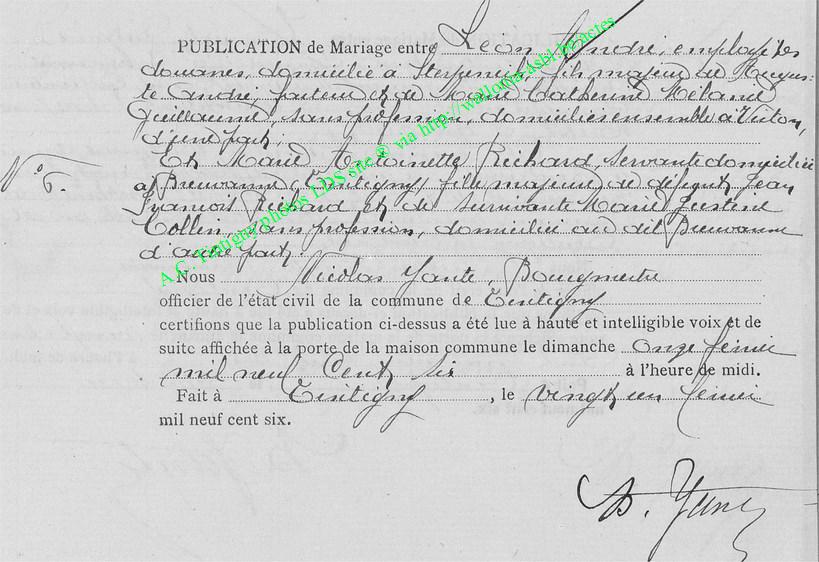 PUBLICATION de Mariage entre Léon André, employé des
douanes, domicilié à Sterpenich, fils majeur de Augus=
te André, facteur et de Marie Catherine Mélanie
Guillaume, sans profession, domiciliés ensemble à Virton,
d'une part;
N° 6.
Et Marie Antoinette Réchard, servante domiciliée
à Breuvanne, Tintigny fille majeure de défunt Jean
François Réchard et de survivante Marie Justine
Collin, sans profession, domiciliée au dit Breuvanne
d'autre part.
Nous Nicolas Yante, Bourgmestre
officier de l'état civil de la commune de Tintigny
certifions que la publication ci-dessus a été lue à haute et intelligible voix et de
suite affichée à la porte de la maison commune le dimanche onze février
mil neuf cent six à l'heure de midi.
Fait à Tintigny, le vingt un février
mil neuf cent six.
N. Yante
A.C. Tintigny photos LDS site ® via http://wallonia-asbl.be/actes